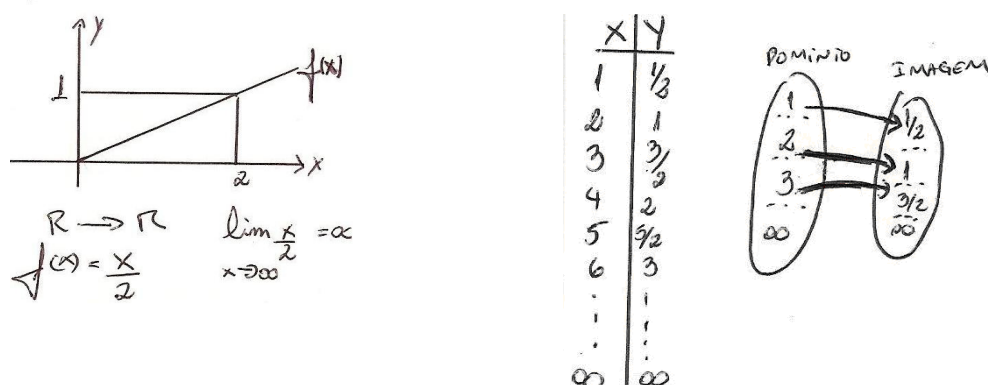 y
f(x)
1
2
x
R → R
f(x) = x/2
lim x/2 = ∝
x→∞
X | Y
1 | 1/2
2 | 1
3 | 3/2
4 | 2
5 | 5/2
6 | 3
∞ | ∞
DOMINIO
1
2
3
∞
IMAGEM
1/2
1
3/2
∞